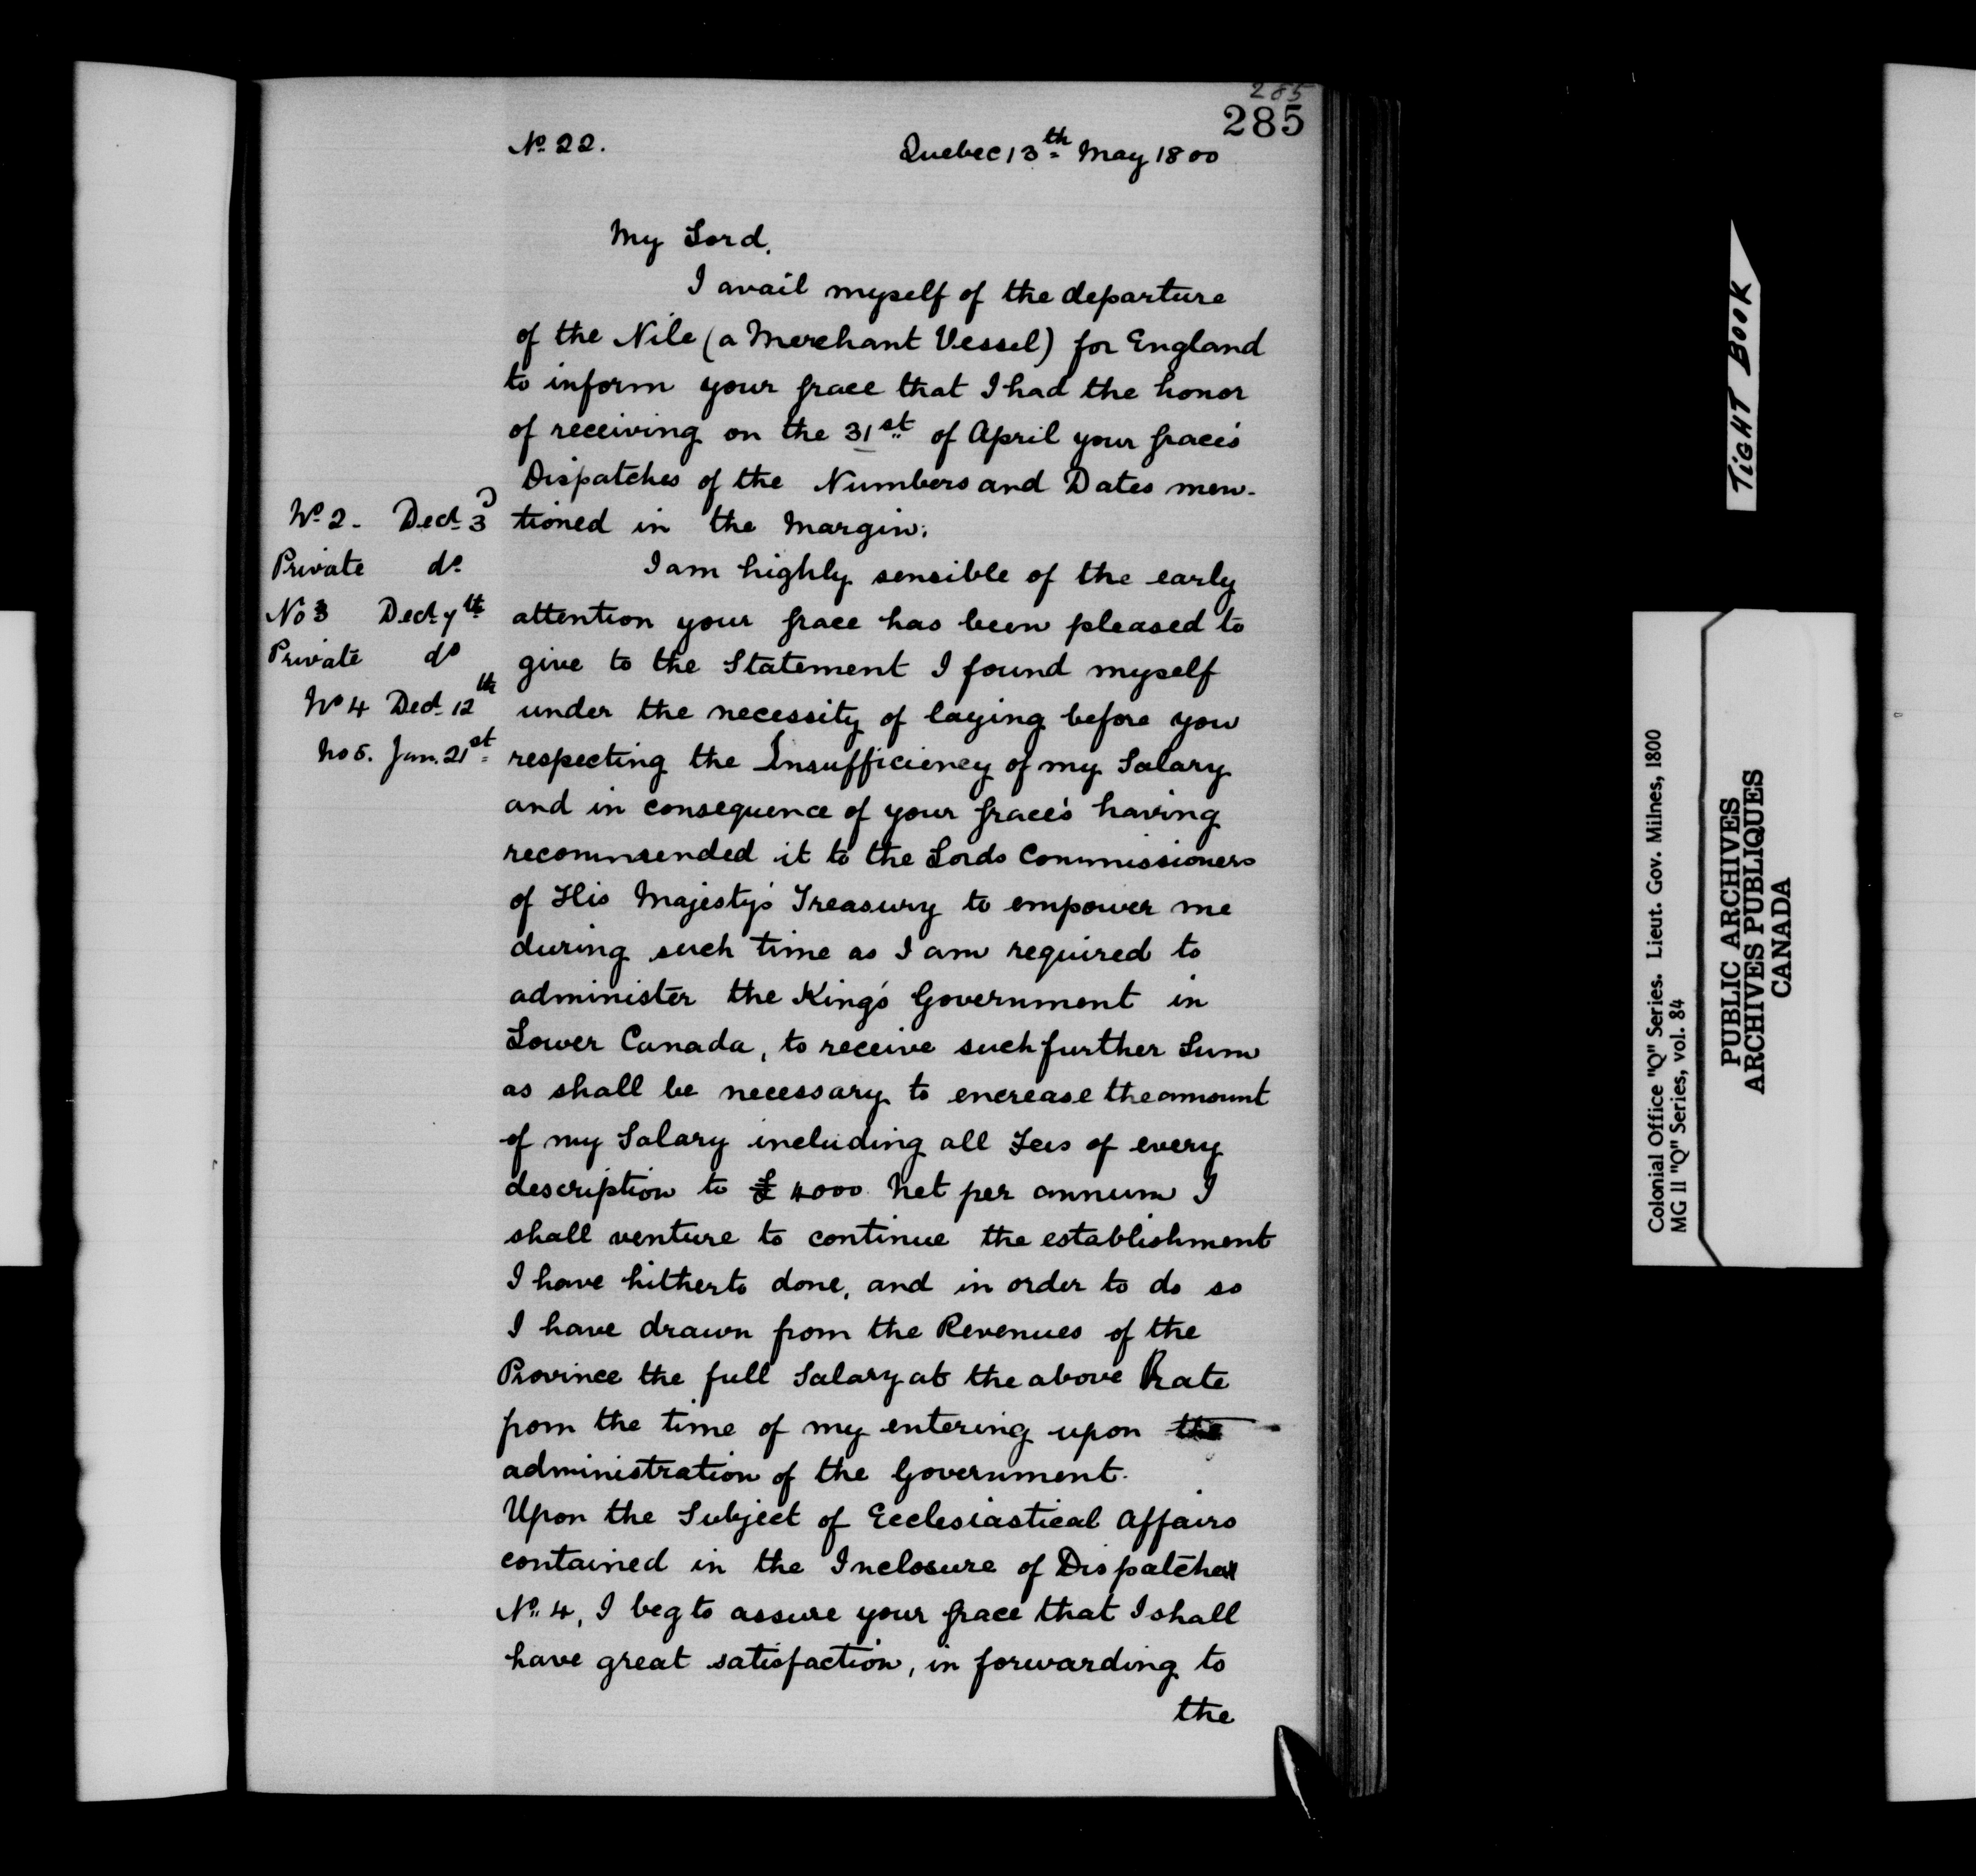 285
285
No. 22.
Quebec 13th May 1800
My Lord,
I avail myself of the departure
of the Nile (a Merchant Vessel) for England
to inform your Grace that I had the honor
of receiving on the 31st of April your Grace's
Dispatches of the Numbers and Dates men-
tioned in the Margin:
No. 2. Decr. 3d
Private do.
No 3 Decr. 7th
Private do
No 4 Decr. 12th
No 5. Jan. 21st.
I am highly sensible of the early
attention your Grace has been pleased to
give to the Statement I found myself
under the necessity of laying before you
respecting the Insufficiency of my Salary
and in consequence of your Grace's having
recommended it to the Lords Commissioners
of His Majesty's Treasury to empower me
during such time as I am required to
administer the King's Government in
Lower Canada, to receive such further Sum
as shall be necessary to encrease the amount
of my Salary including all Fees of every
description to £ 4000 Net per annum I
shall venture to continue the establishment
I have hitherto done, and in order to do so
I have drawn from the Revenues of the
Province the full Salary at the above Rate
from the time of my entering upon the
administration of the Government.
Upon the Subject of Ecclesiastical Affairs
contained in the Inclosure of Dispatch
No. 4, I beg to assure your Grace that I shall
have great satisfaction, in forwarding to
the
TIGHT BOOK
Colonial Office "Q" Series. Lieut. Gov. Milnes, 1800
MG 11 "Q" Series, vol. 84
PUBLIC ARCHIVES
ARCHIVES PUBLIQUES
CANADA